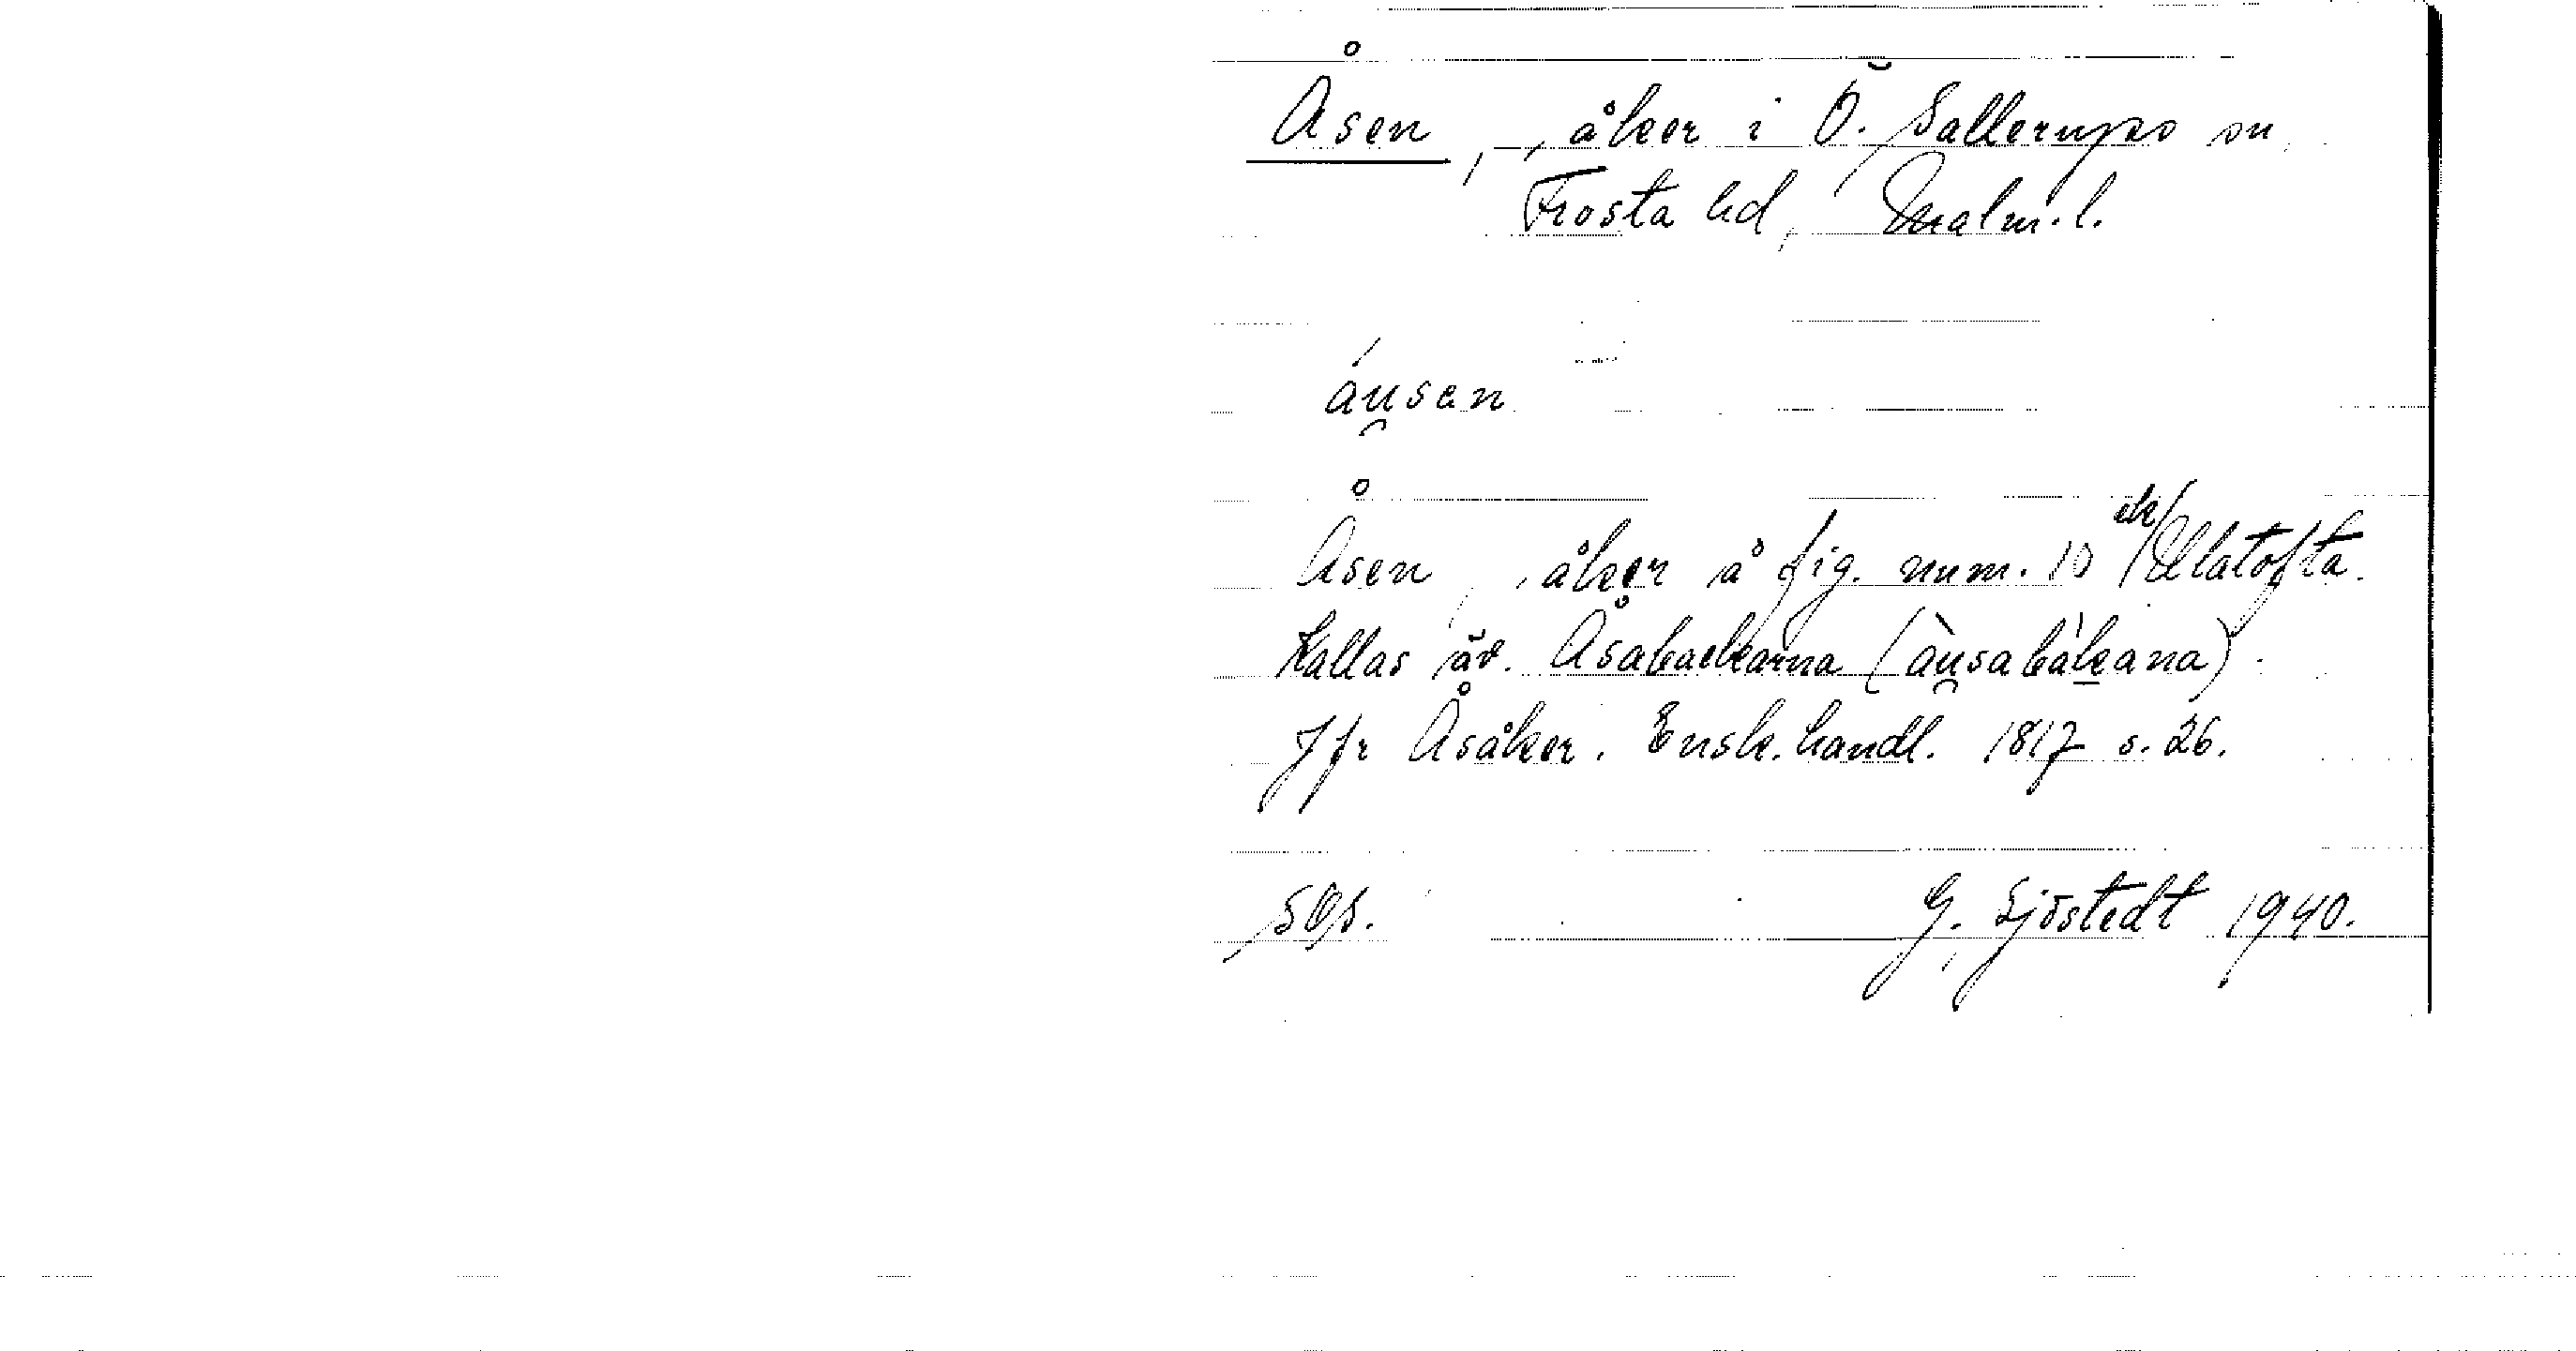 Åsen, åker i Ö. Sallerups sn,
Frosta hd, Malm.l.
áu̯sen
Åsen, åker å fig. num. 10 Ullatofta.
Kallas äv. Åsabackarna (àu̯sabàkana).
Jfr Åsåker. Ensk. handl. 1817 s. 26.
sOs. G. Sjöstedt 1940.